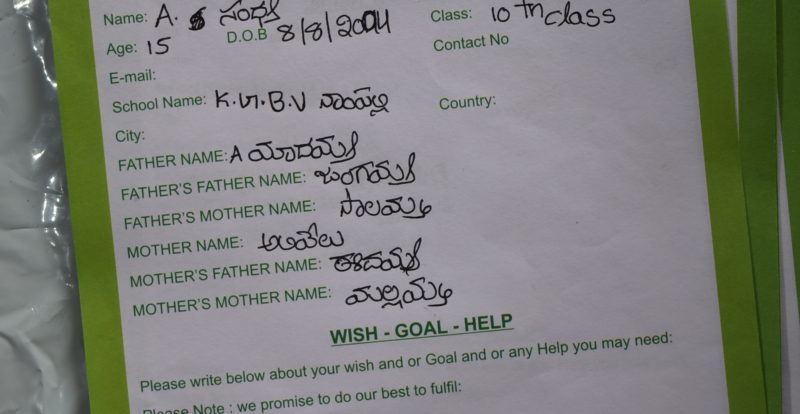 Name: A. సంధ్య Class: 10th class
Age: 15 D.O.B 8/8/2004 Contact No
E-mail:
School Name: K.G.B.V Country:
City:
FATHER NAME: A యాదయ్య
FATHER'S FATHER NAME: జంగయ్య
FATHER'S MOTHER NAME: సాలమ్మ
MOTHER NAME: అలివేలు
MOTHER'S FATHER NAME: ఈదయ్య
MOTHER'S MOTHER NAME: మల్లమ్మ
WISH - GOAL - HELP
Please write below about your wish and or Goal and or any Help you may need:
Please Note : we promise to do our best to fulfil: